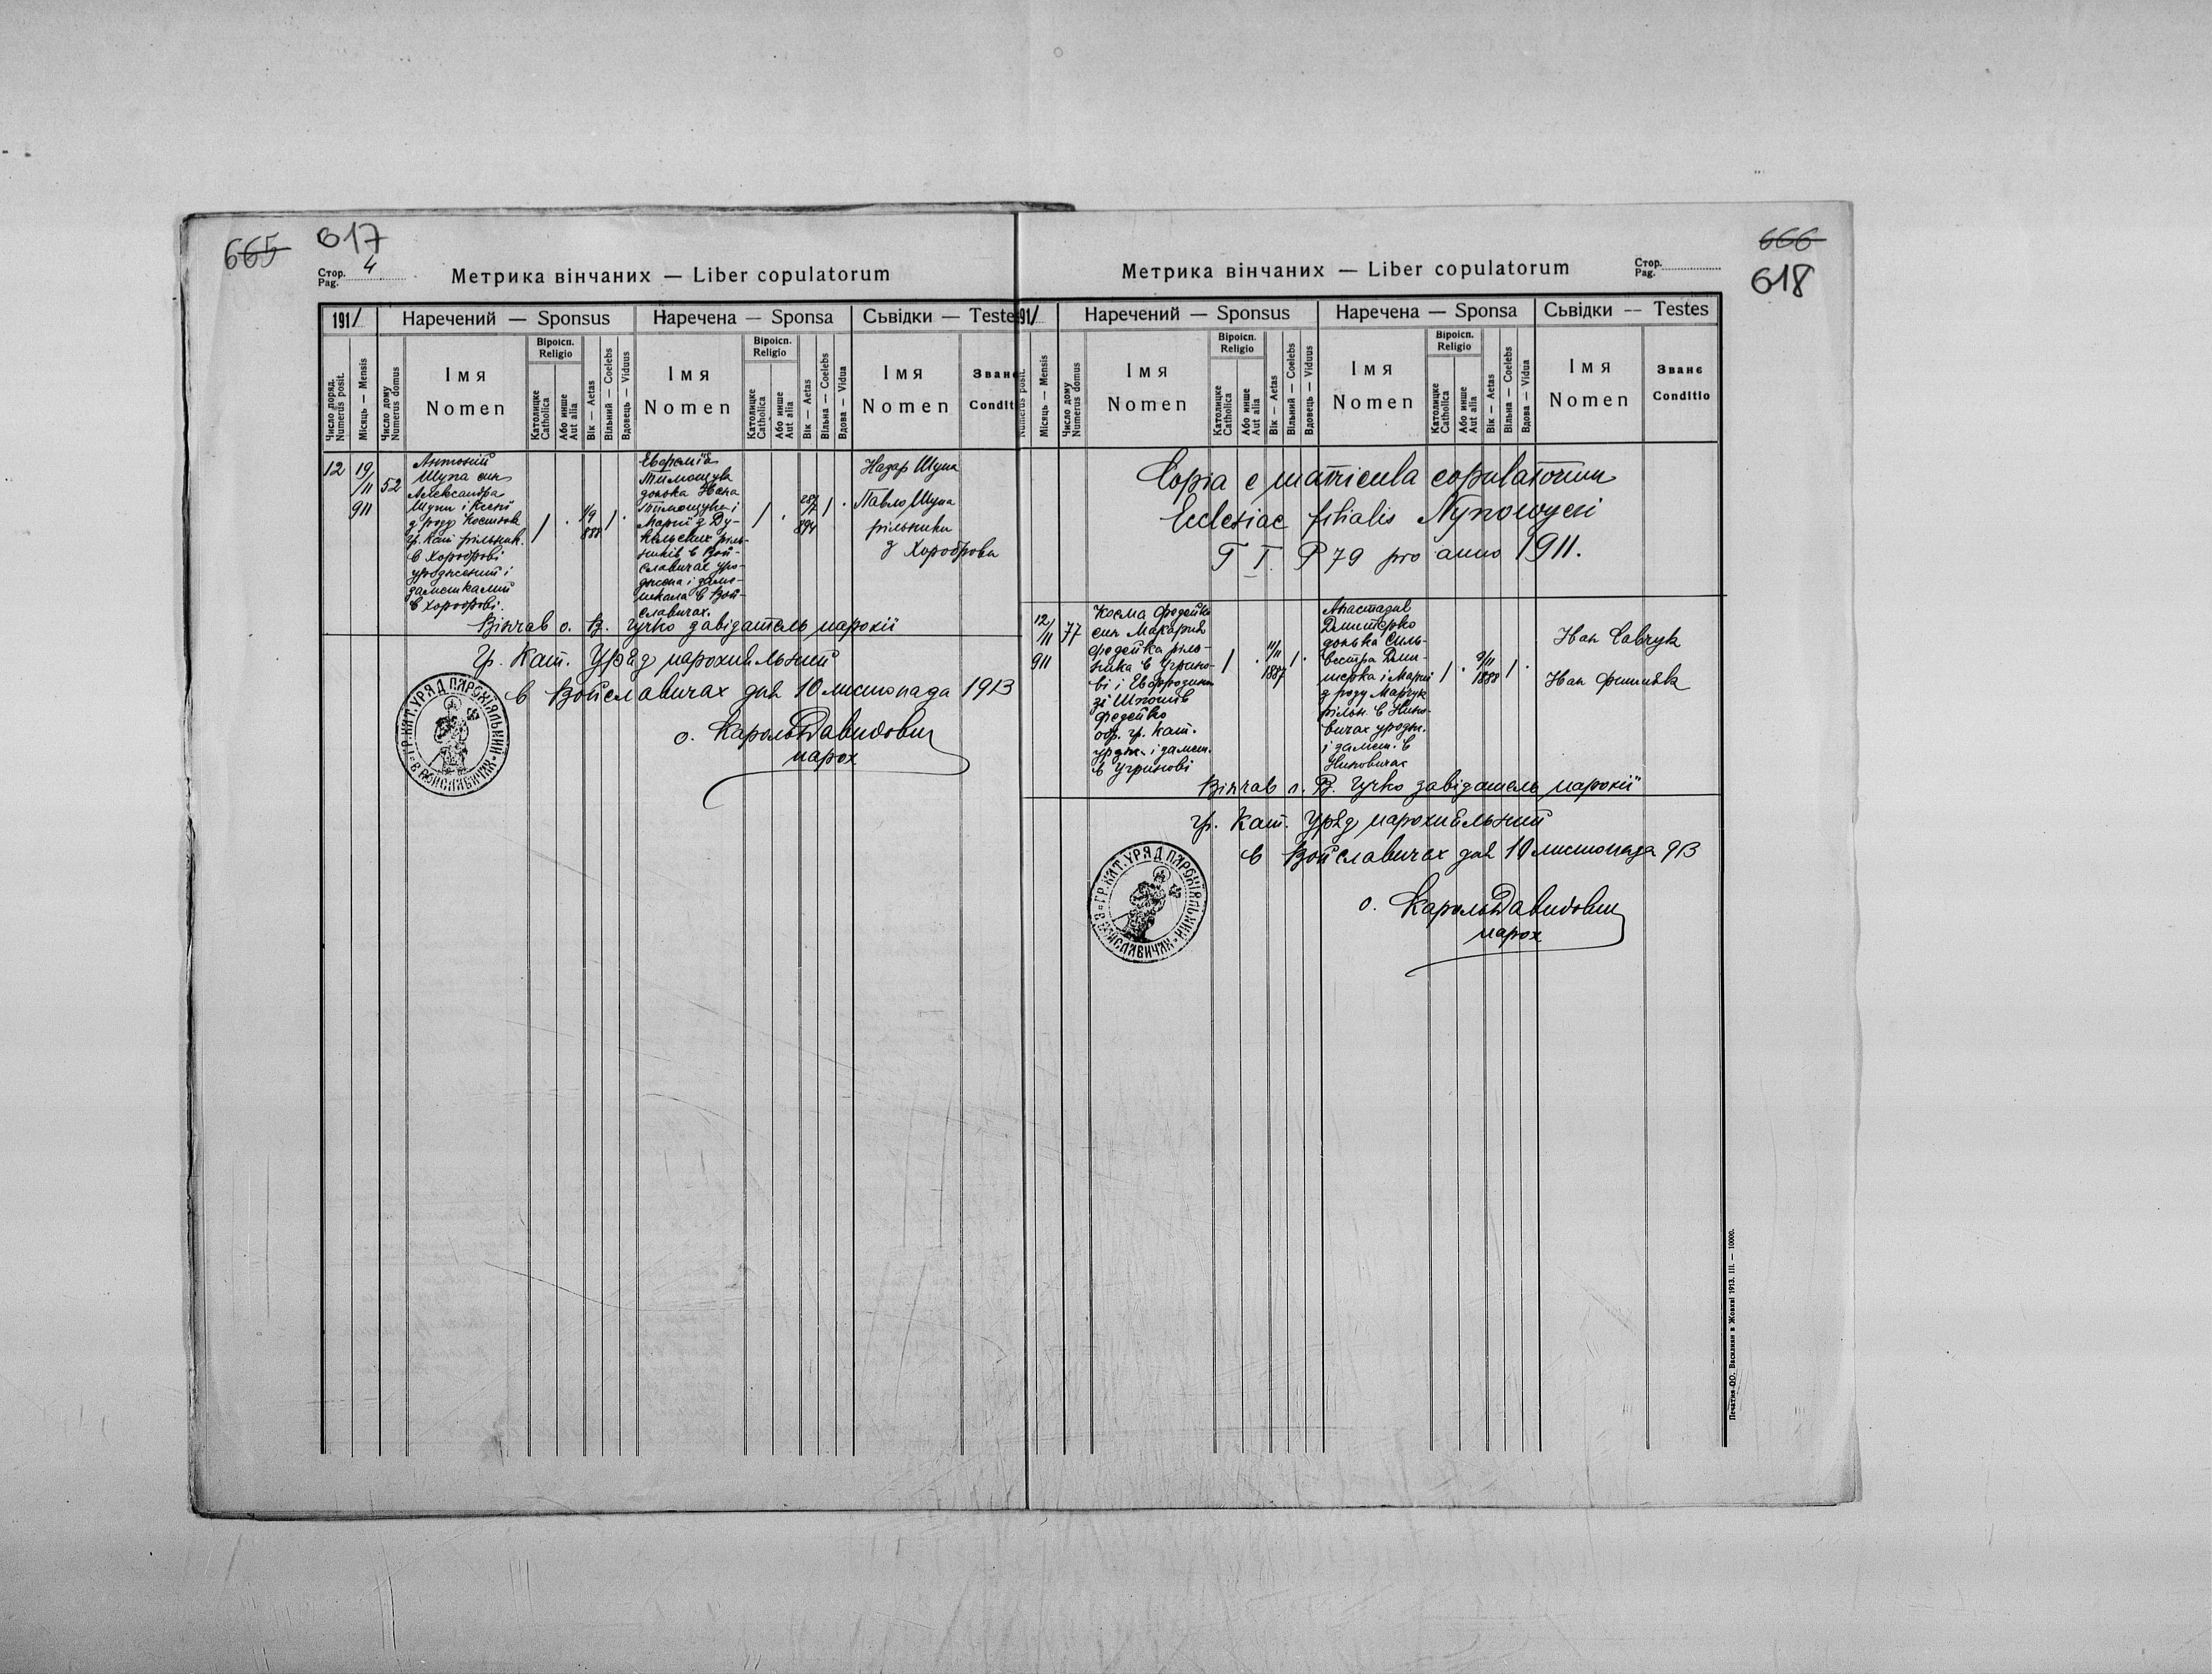 665 617
Стор. 4
Pag.
Метрика вінчаних — Liber copulatorum
1911
Наречений — Sponsus
Наречена — Sponsa
Сьвідки — Testes
Число поряд.
Numerus posit.
Місяць — Mensis
Число дому
Numerus domus
Імя
Nomen
Віроісп.
Religio
Католицке
Catholica
Або инше
Aut alia
Вік — Aetas
Вільний — Coelebs
Вдовець — Viduus
Імя
Nomen
Віроісп.
Religio
Католицке
Catholica
Або инше
Aut alia
Вік — Aetas
Вільна — Coelebs
Вдова — Vidua
Імя
Nomen
Званє
Conditi
12
19/11
911
52
Антоній
Шупа син
Александра
Шупи і Ксені
з роду Костюк
гр. кат рільник.
в Хороброві
уроджений і
замешкалий
в Хороброві.
1 .
1/9
888
1 .
Евфемія
Тимощук
донька Івана
Тимощука і
Марії з Ду-
кальских ріль-
ників в Вой-
славичах уро-
джена і заме-
шкала в Вой-
славичах.
1 .
28/7
894
1 .
Назар Шупа
Павло Шупа
рільники
з Хороброва
Вінчав о. В. Гучко завідатель парохії
Гр. Кат. Уряд парохіяльний
в Войславичах дня 10 листопада 1913
о. Кароль Давидович
парох
ГР. КАТ. УРЯД ПАРОХІЯЛЬНИЙ В ВОЙСЛАВИЧАХ
666
618
Стор.
Pag.
Метрика вінчаних — Liber copulatorum
911
Наречений — Sponsus
Наречена — Sponsa
Сьвідки — Testes
Numerus posit.
Місяць — Mensis
Число дому
Numerus domus
Імя
Nomen
Віроісп.
Religio
Католицке
Catholica
Або инше
Aut alia
Вік — Aetas
Вільний — Coelebs
Вдовець — Viduus
Імя
Nomen
Віроісп.
Religio
Католицке
Catholica
Або инше
Aut alia
Вік — Aetas
Вільна — Coelebs
Вдова — Vidua
Імя
Nomen
Званє
Conditio
Copia e matricula copulatorum
Ecclesiae filialis Nynowyci
T I. P 79 pro anno 1911.
12/11
911
77
Косма Федейко
син Макария
Федейка ріль-
ника в Угрино-
ві і Евфрозини
зі Шпотів
Федейко
обр. гр. кат.
урдж. і замеш.
в Угринові
1 .
11/11
1887
1 .
Анастазия
Дмитерко
донька Силь-
вестра Дми-
терка і Марії
з роду Марчук
рільн. в Нино-
вичах уродж.
і замеш. в
Ниновичах
1 .
9/11
1888
1 .
Іван Савчук
Іван
Вінчав о. В. Гучко завідатель парохії
Гр. Кат. Уряд парохіяльний
в Войславичах дня 10 листопада 913
о. Кароль Давидович
парох
ГР. КАТ. УРЯД ПАРОХІЯЛЬНИЙ В ВОЙСЛАВИЧАХ
Печатня ОО. Василиян в Жовкві 1913. III. — 10000.